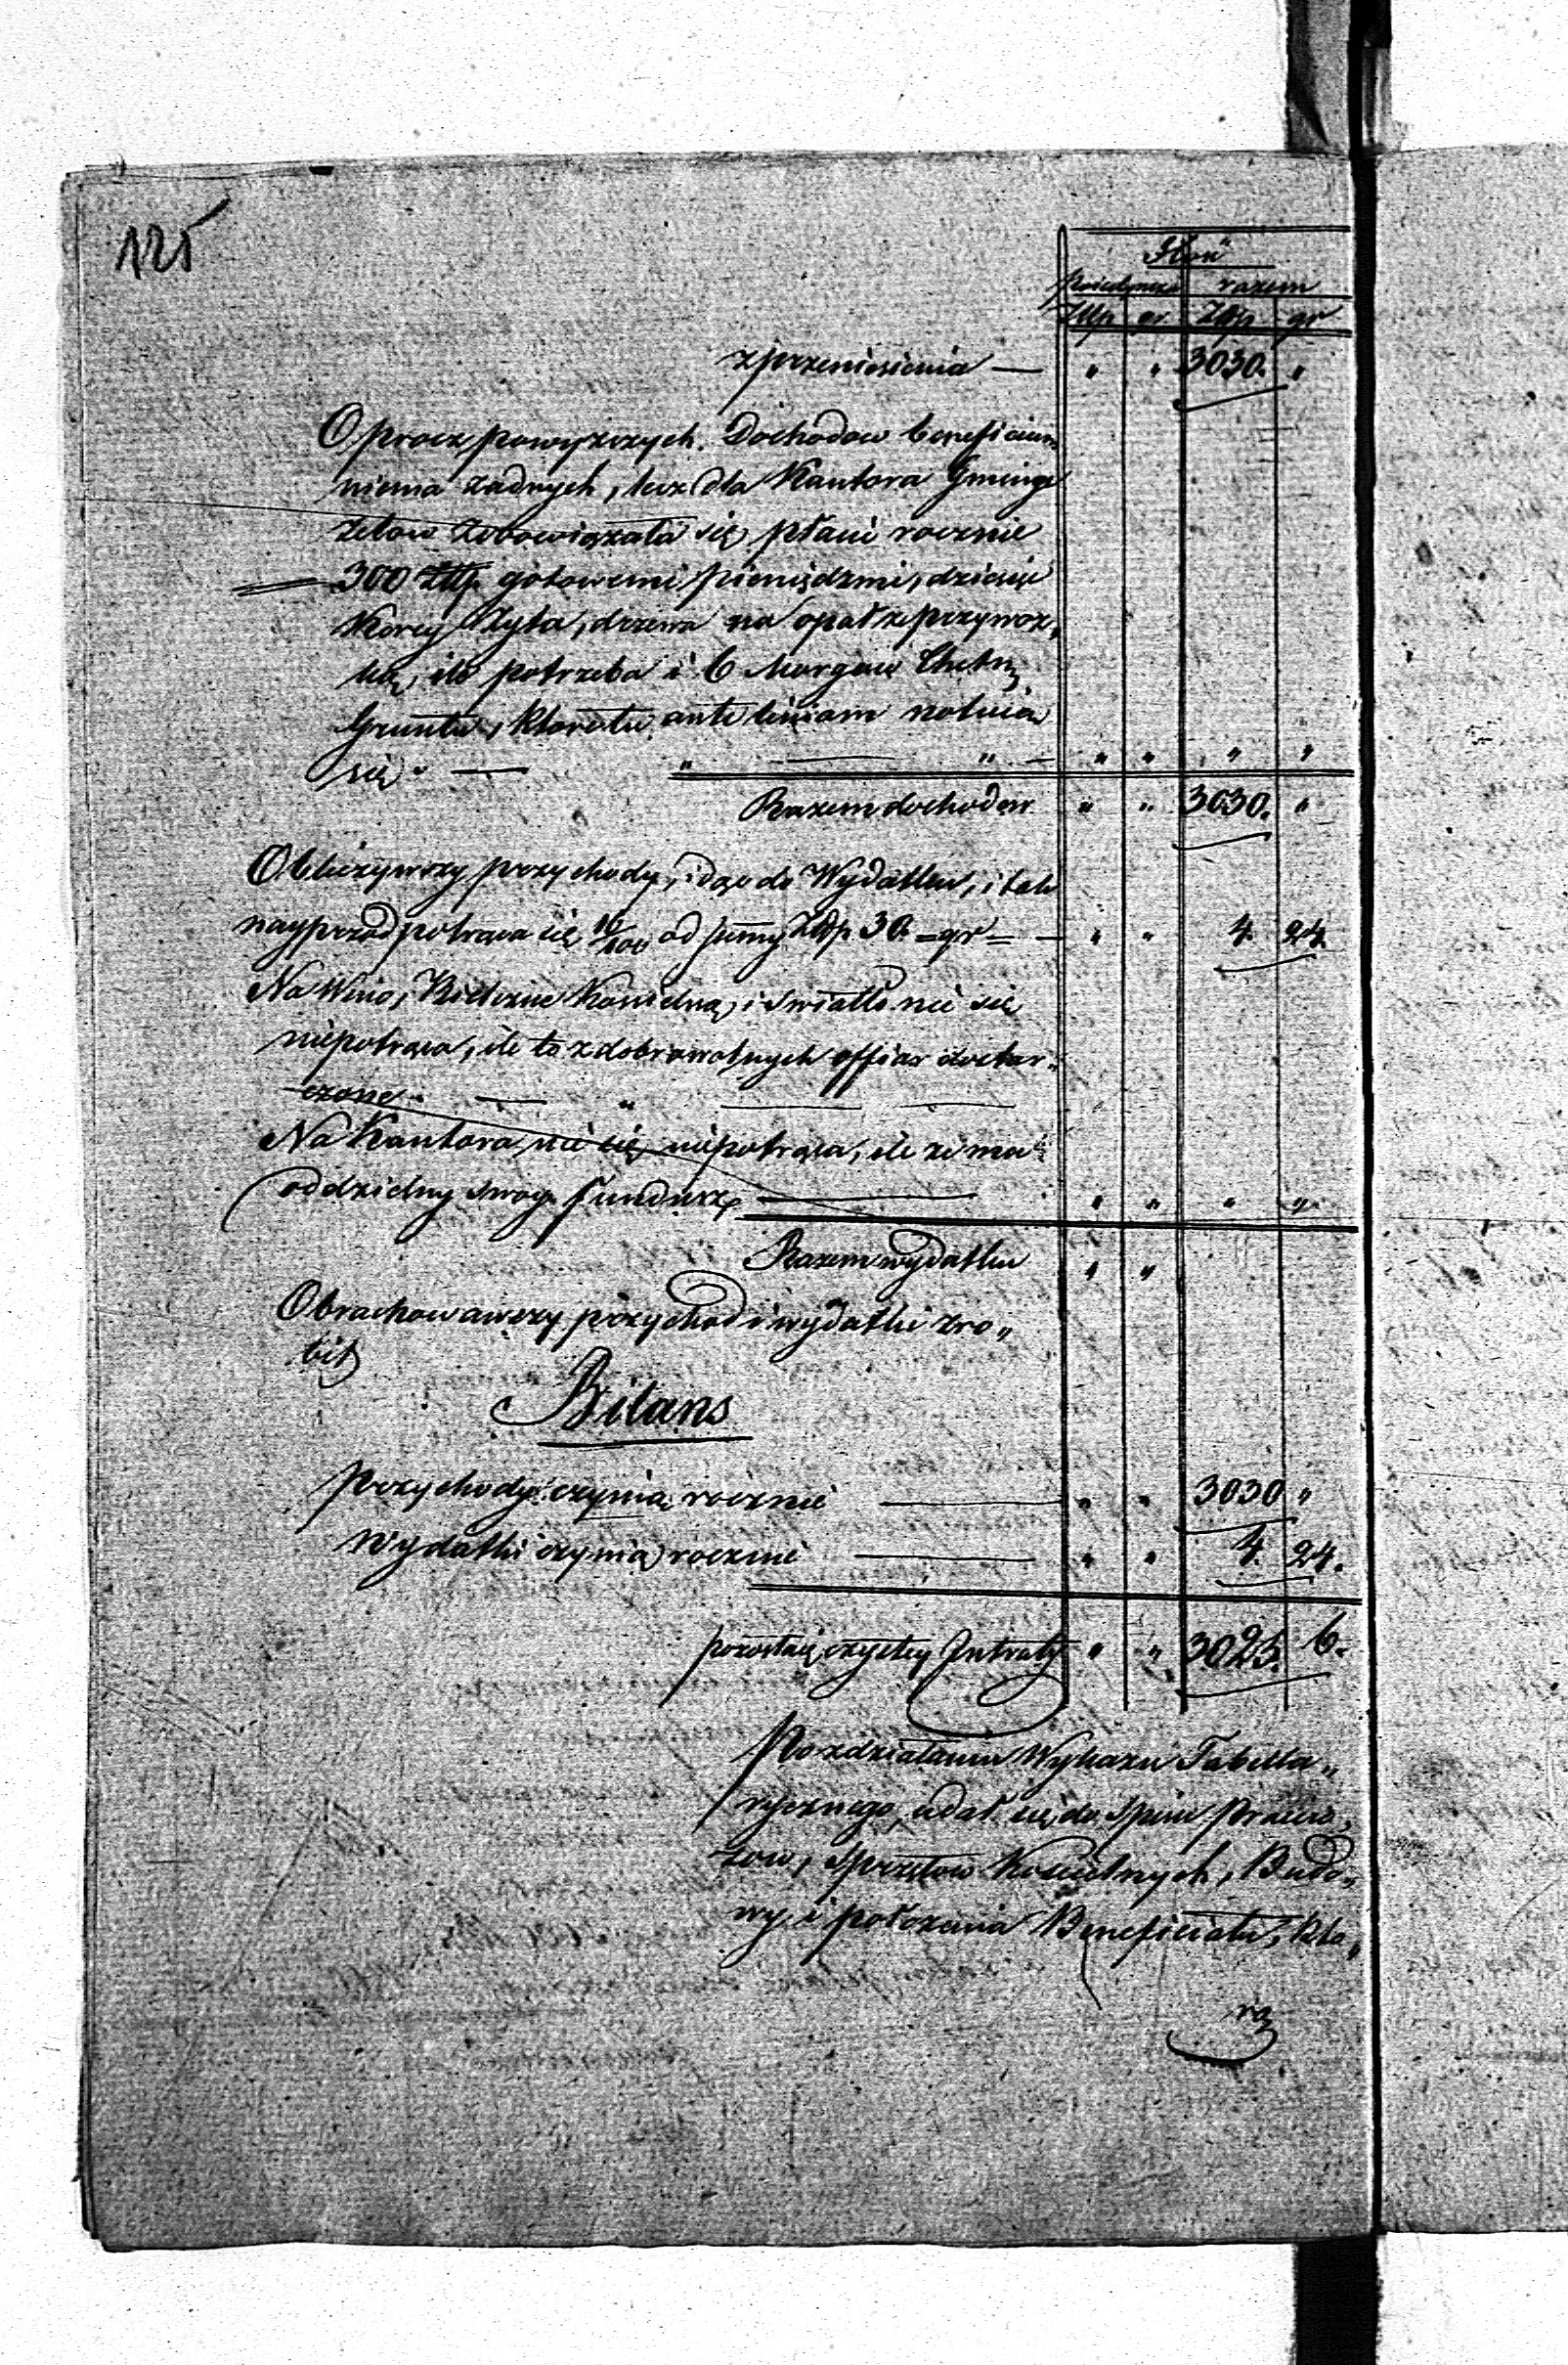 125
Ilość
Poiedyncza razem
Złłp gr Złłp gr
z przeniesienia — " " 3030. "
Oprocz powyższych Dochodow beneficium
niema żadnych, lecz dla Kantora Gmina
Zelow zobowiązała się płacić rocznie
300 Złłp gotowemi pieniędzmi, dziesięć
Korcy Żyta, drzewa na opał z przywoz„
ką, ile potrzeba i 6 Morgow Chełm
Gruntu, które tu ante liniam notuią
się " — " — " — " " " "
Razem dochodow " " 3030. "
Obliczywszy przychody, idąc do Wydatku, i tak
nayprzod potrąca się 16/100 od summy Złłp 30 = gr = — " " 4. 24.
Na Wino, Bieliznę Kościelną, i Swiatło nic się
niepotrąca, ile to z dobrowolnych offiar dostar„
czone " — " —
Na Kantora nic się niepotrąca, ile że ma
oddzielny swoy fundusz — " " " "
Razem wydatku " "
Obrachowawszy przychod i wydatki zro„
bił
Bilans
Przychody czynią rocznie — " " 3030 "
Wydatki czynią rocznie — " " 4. 24.
pozostaię czystey Intraty " " 3025. 6.
Po zdziałaniu Wykazu Tabella„
rycznego, udał się do spisu
zow, sprzętow Kościelnych, Budo„
wy i położenia Beneficiatu, kto„
rą